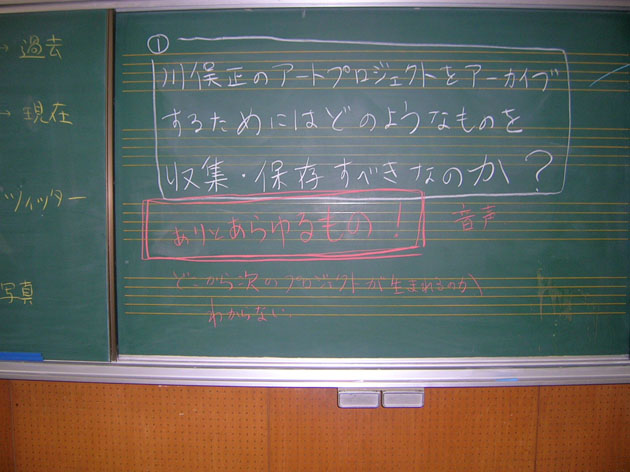 → 過去
→ 現在
ツイッター
写真
①
川俣正のアートプロジェクトをアーカイブ
するためにはどのようなものを
収集・保存すべきなのか?
ありとあらゆるもの!
音声
どこから次のプロジェクトが生まれるのか
わからない